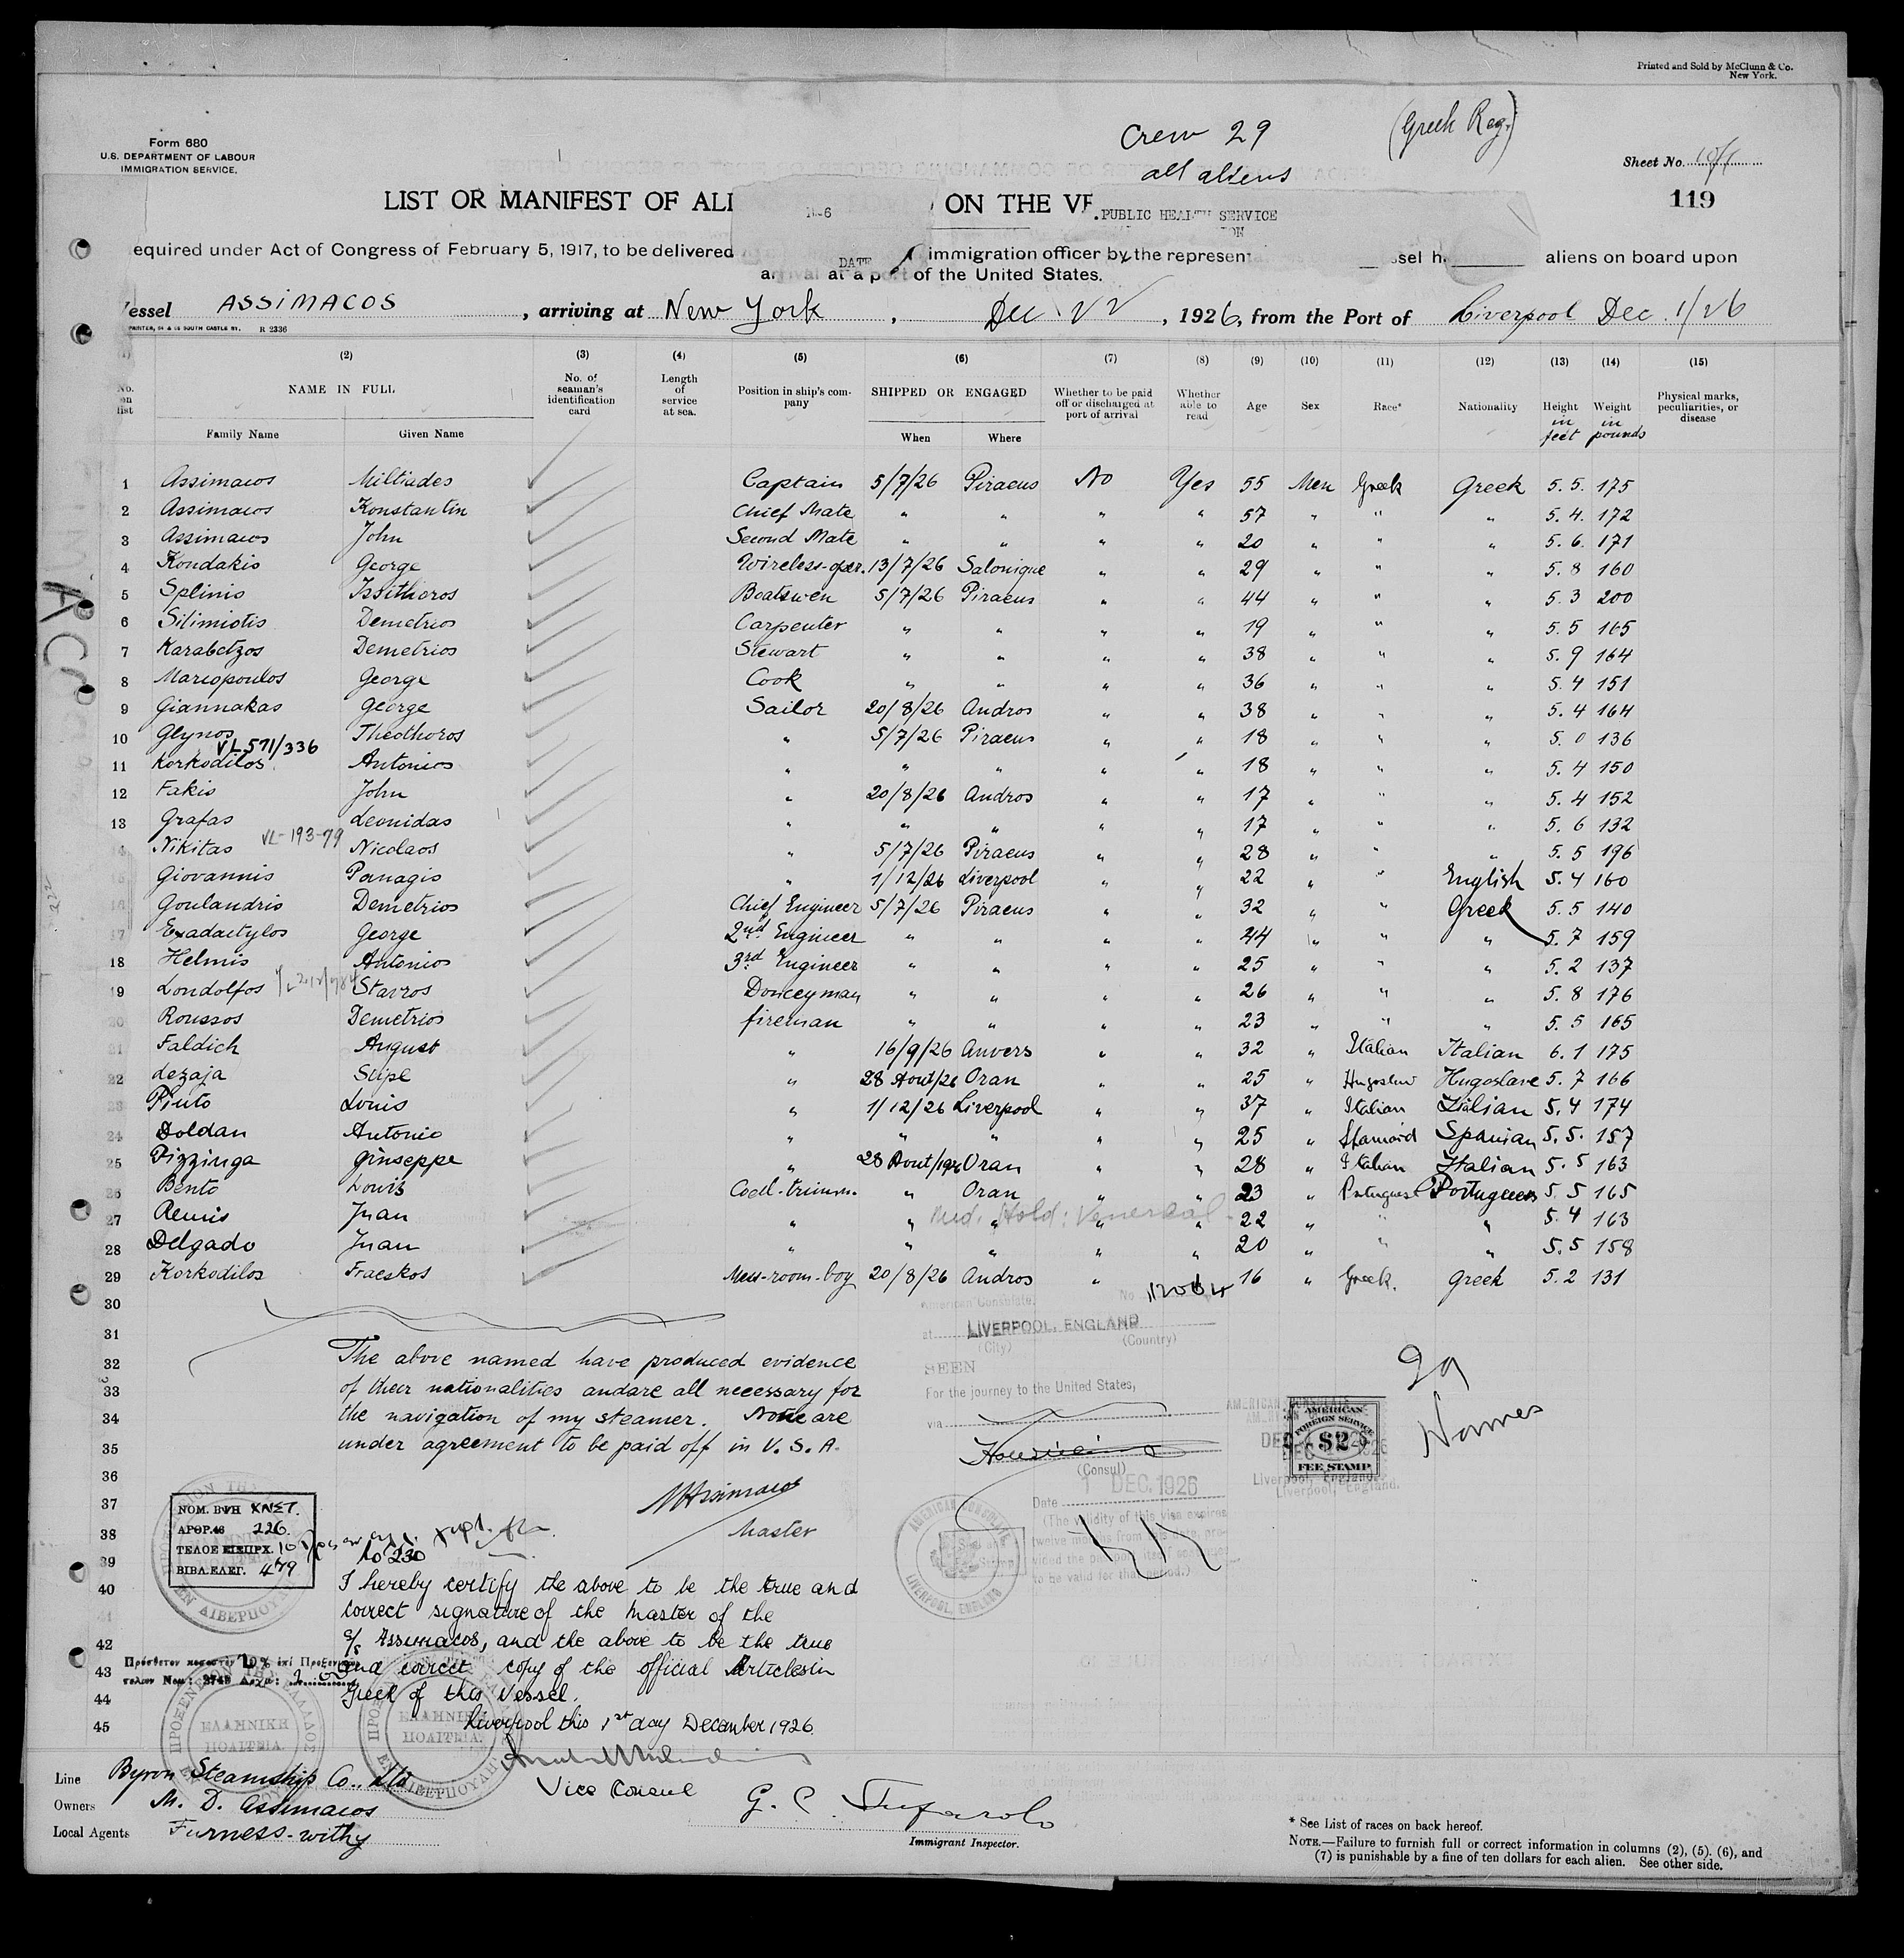 Printed and Sold by McClunn & Co.
New York.
Crew 29
(Greek Reg.)
all aliens
Form 680
U.S. DEPARTMENT OF LABOUR
IMMIGRATION SERVICE.
Sheet No.
119
LIST OR MANIFEST OF ALI ON THE VE
PUBLIC HEALTH SERVICE
equired under Act of Congress of February 5, 1917, to be delivered immigration officer by the represent ssel h aliens on board upon
DATE
arrival at a port of the United States.
Vessel ASSIMACOS, arriving at New York, Dec 22, 1926, from the Port of Liverpool Dec 1/26
PRINTER, 54 & 56 SOUTH CASTLE ST. R 2336
(2) (3) (4) (5) (6) (7) (8) (9) (10) (11) (12) (13) (14) (15)
No. on list NAME IN FULL No. of seaman's identification card Length of service at sea. Position in ship's company SHIPPED OR ENGAGED Whether to be paid off or discharged at port of arrival Whether able to read Age Sex Race* Nationality Height in feet Weight in pounds Physical marks, peculiarities, or disease
Family Name Given Name When Where
1 Assimacos Miltiades Captain 5/7/26 Piraeus No Yes 55 Men Greek Greek 5.5. 175
2 Assimacos Konstantin Chief Mate " " " " 57 " " " 5.4. 172
3 Assimacos John Second Mate " " " " 20 " " " 5.6. 171
4 Kondakis George Wireless-oper. 13/7/26 Salonique " " 29 " " " 5.8 160
5 Splinis Issitheros Boatswen 5/7/26 Piraeus " " 44 " " " 5.3 200
6 Silimiotis Demetrios Carpenter " " " " 19 " " " 5.5 165
7 Karabetzos Demetrios Stewart " " " " 38 " " " 5.9 164
8 Marcopoulos George Cook " " " " 36 " " " 5.4 151
9 Giannakas George Sailor 20/8/26 Andros " " 38 " " " 5.4 164
10 Glynos Theothoros " 5/7/26 Piraeus " " 18 " " " 5.0 136
VL 571/336
11 Korkodilos Antonios " " " " 18 " " " 5.4 150
12 Fakis John " 20/8/26 Andros " " 17 " " " 5.4 152
13 Grafas Leonidas " " " " " 17 " " " 5.6 132
VL-193-79
14 Nikitas Nicolaos " 5/7/26 Piraeus " " 28 " " " 5.5 196
15 Giovannis Panagis " 1/12/26 Liverpool " " 22 " " English 5.4 160
16 Goulandris Demetrios Chief Engineer 5/7/26 Piraeus " " 32 " " Greek 5.5 140
17 Exadactylos George 2nd Engineer " " " " 44 " " " 5.7 159
18 Helmis Antonios 3rd Engineer " " " " 25 " " " 5.2 137
19 Londolfos Stavros Donceyman " " " " 26 " " " 5.8 176
20 Roussos Demetrios fireman " " " " 23 " " " 5.5 165
21 Faldich August " 16/9/26 Anvers " " 32 " Italian Italian 6.1 175
22 Lezaja Stipe " 28 Aout/26 Oran " " 25 " Hugoslav Hugoslave 5.7 166
23 Pinto Louis " 1/12/26 Liverpool " " 37 " Italian Italian 5.4 174
24 Doldan Antonio " " " " " 25 " Spanish 5.5. 157
25 Pizzinga Giuseppe " 28 Aout/1926 Oran " " 28 " Italian Italian 5.5 163
26 Bento Louis Coal-trimm. " Oran " " 23 " Portuguese Portuguese 5.5 165
27 Remis Juan " " " " " 22 " " " 5.4 163
Med. Hold: Venereal
28 Delgado Juan " " " " " 20 " " " 5.5 158
29 Korkodilos Fraeskos Mess-room-boy 20/8/26 Andros " 16 " Greek. Greek 5.2 131
30
31
32
33
34
35
36
37
38
39
40
41
42
43
44
45
The above named have produced evidence
of their nationalities and are all necessary for
the navigation of my steamer. None are
under agreement to be paid off in U.S.A.
M Assimacos
Master
American Consulate.
at LIVERPOOL, ENGLAND
(City) (Country)
SEEN
For the journey to the United States,
via
(Consul)
1 DEC. 1926
Date
(The validity of this visa expires
twelve months from this date, pro-
vided the passport itself continues
to be valid for that period.)
AMERICAN CONSULATE
LIVERPOOL, ENGLAND
AMERICAN
FOREIGN SERVICE
$2
FEE STAMP
Liverpool, England.
29
Names
ΝΟΜ. ΒΥΗ ΧΝΣΤ.
ΑΡΘΡ.46 226
ΤΕΛΟΣ ΕΙΣΠΡΧ. 10
ΒΙΒΛ.ΕΛΕΓ. 479
No 230
I hereby certify the above to be the true and
correct signature of the Master of the
s/s Assimacos, and the above to be the true
and correct copy of the official Articles in
Greek of this Vessel.
Liverpool this 1st day December 1926
Vice Consul
ΕΛΛΗΝΙΚΗ
ΠΟΛΙΤΕΙΑ.
ΕΛΛΗΝΙΚΗ
ΠΟΛΙΤΕΙΑ.
Line Byron Steamship Co., Ltd
Owners M. D. Assimacos
Local Agents Furness-withy
Immigrant Inspector.
* See List of races on back hereof.
NOTE.—Failure to furnish full or correct information in columns (2), (5). (6), and
(7) is punishable by a fine of ten dollars for each alien. See other side.